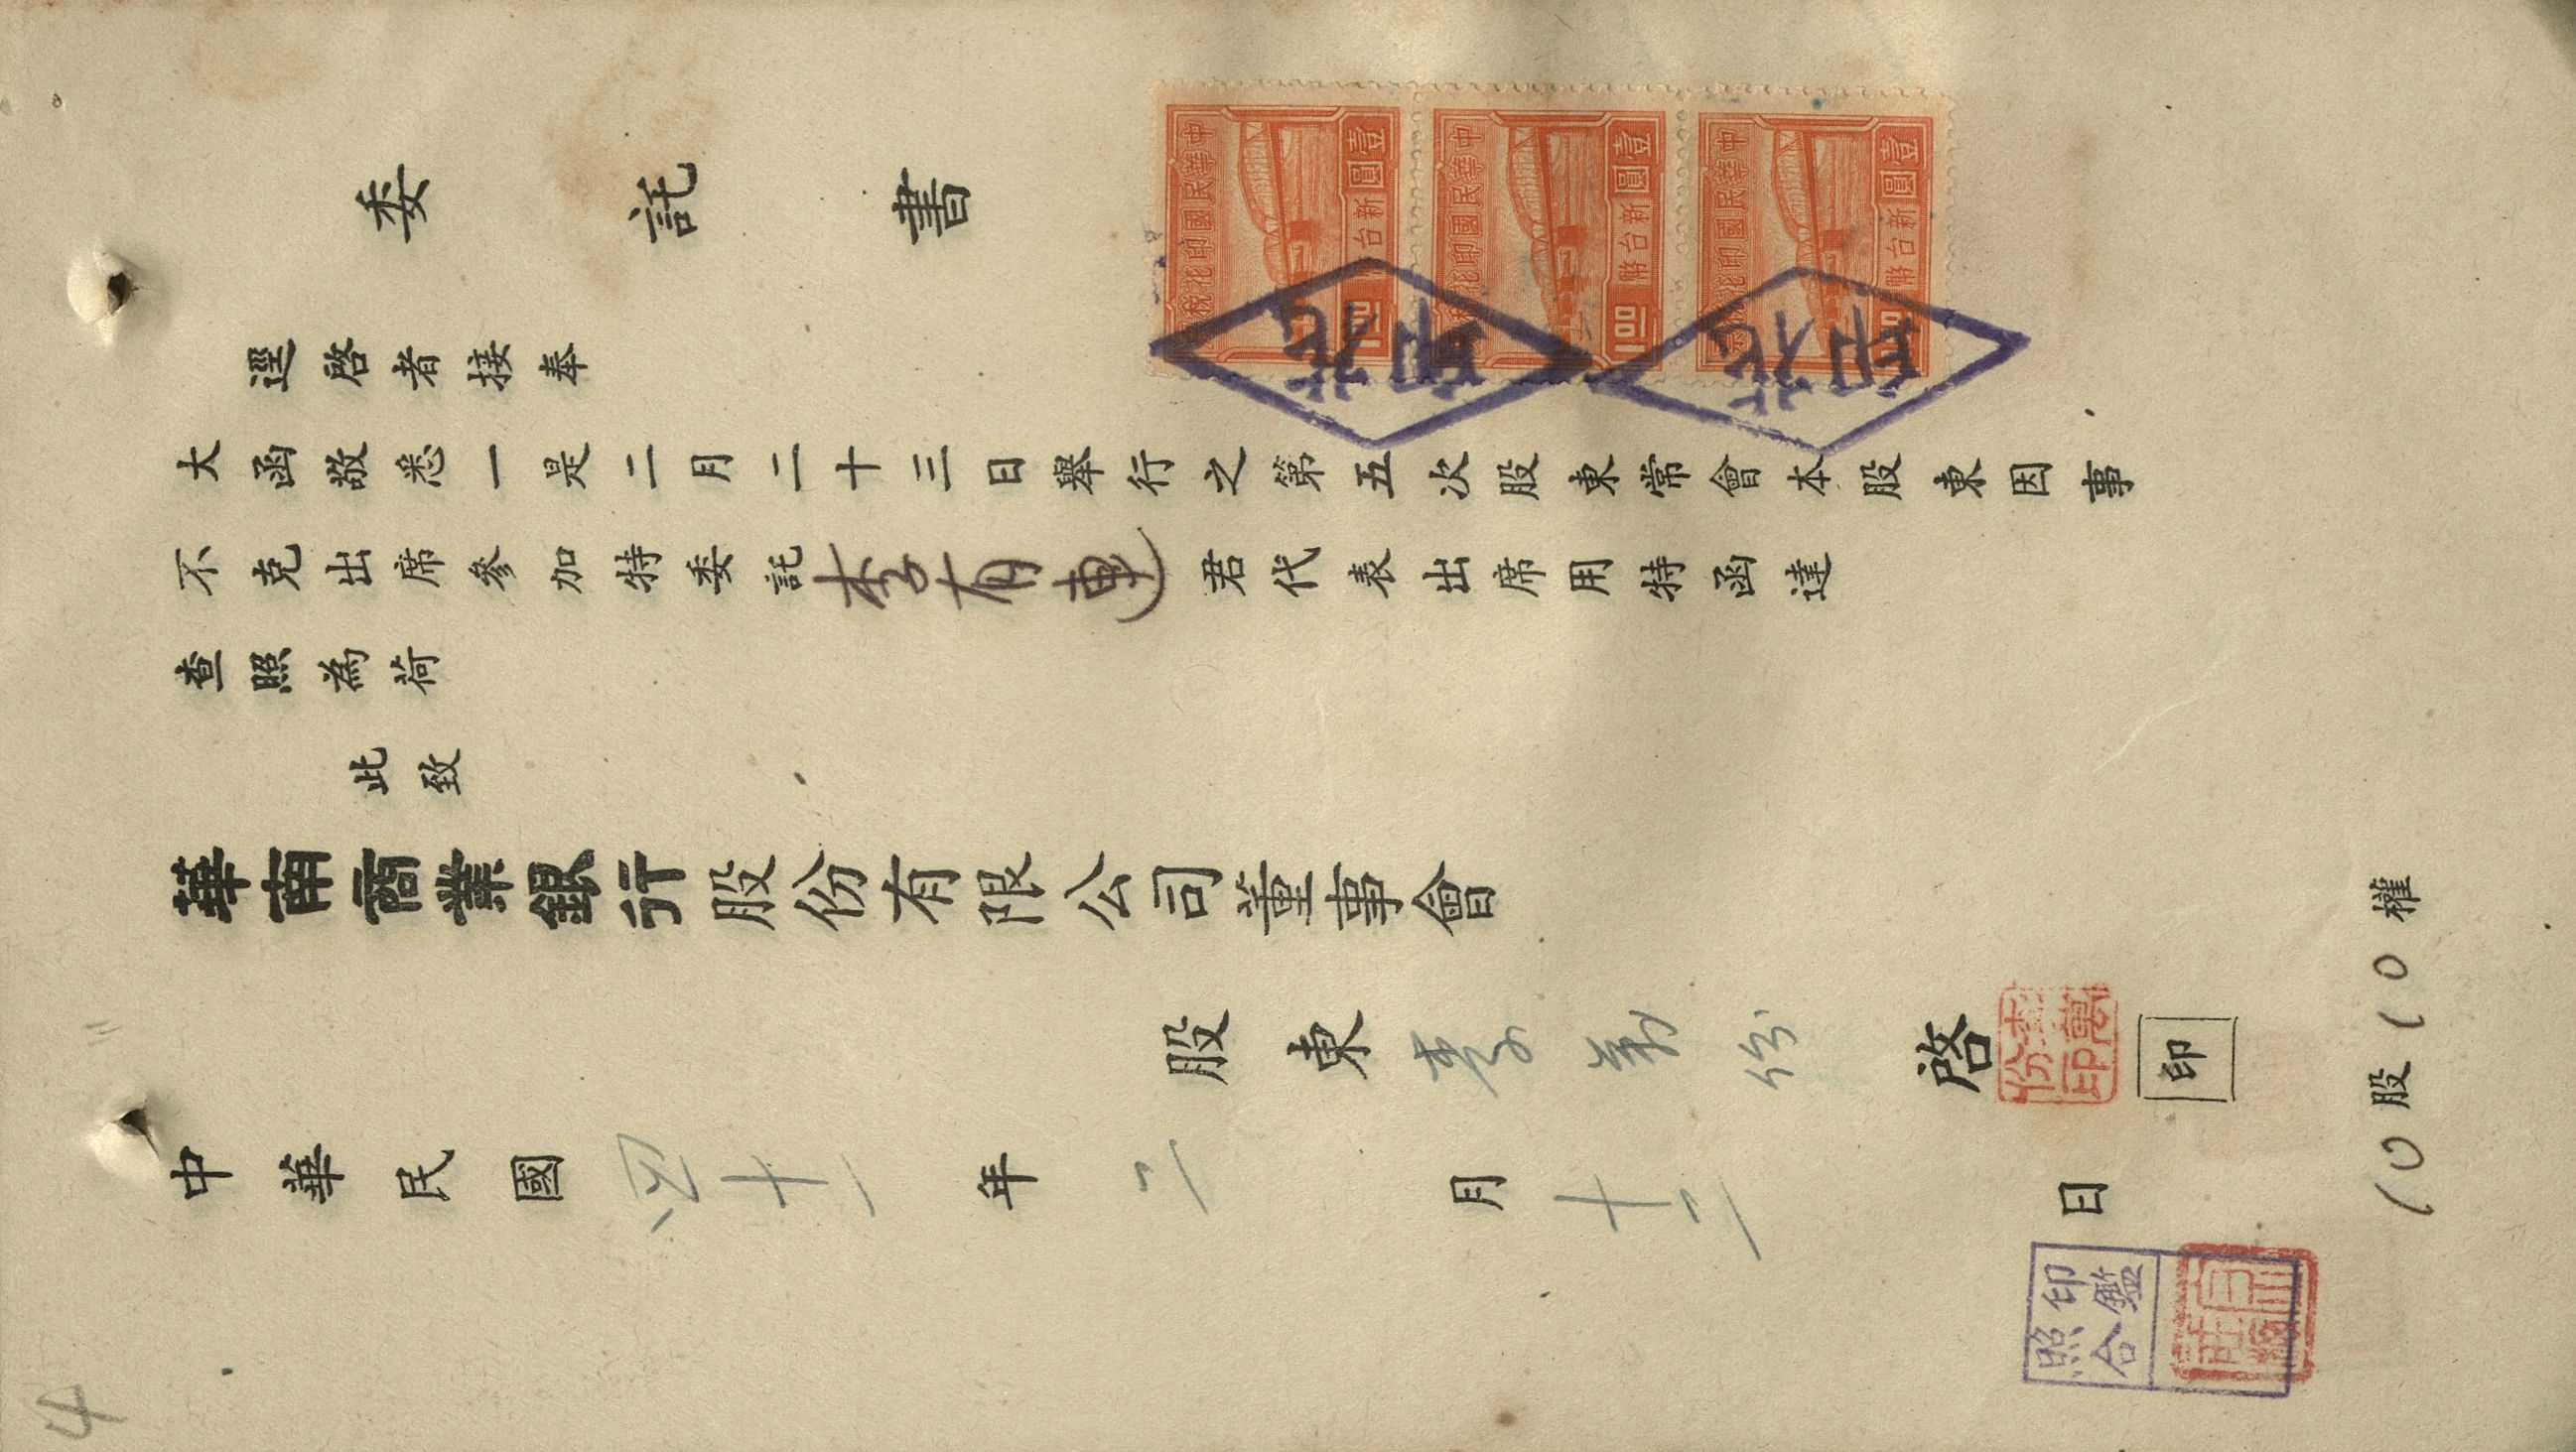 委託書
逕啓者接奉
大函敬悉一是二月二十三日舉行之第五次股東常會本股東因事
不克出席參加特委託李有連君代表出席用特函達
查照為荷
此致
華南商業銀行股份有限公司董事會
股東李萬份啓
李萬份印
印
中華民國四十一年二月十三日
10股10權
印鑑
照合
中華民國印花稅票
壹圓
新台幣
1.00
中華民國印花稅票
壹圓
新台幣
1.00
中華民國印花稅票
壹圓
新台幣
1.00
4